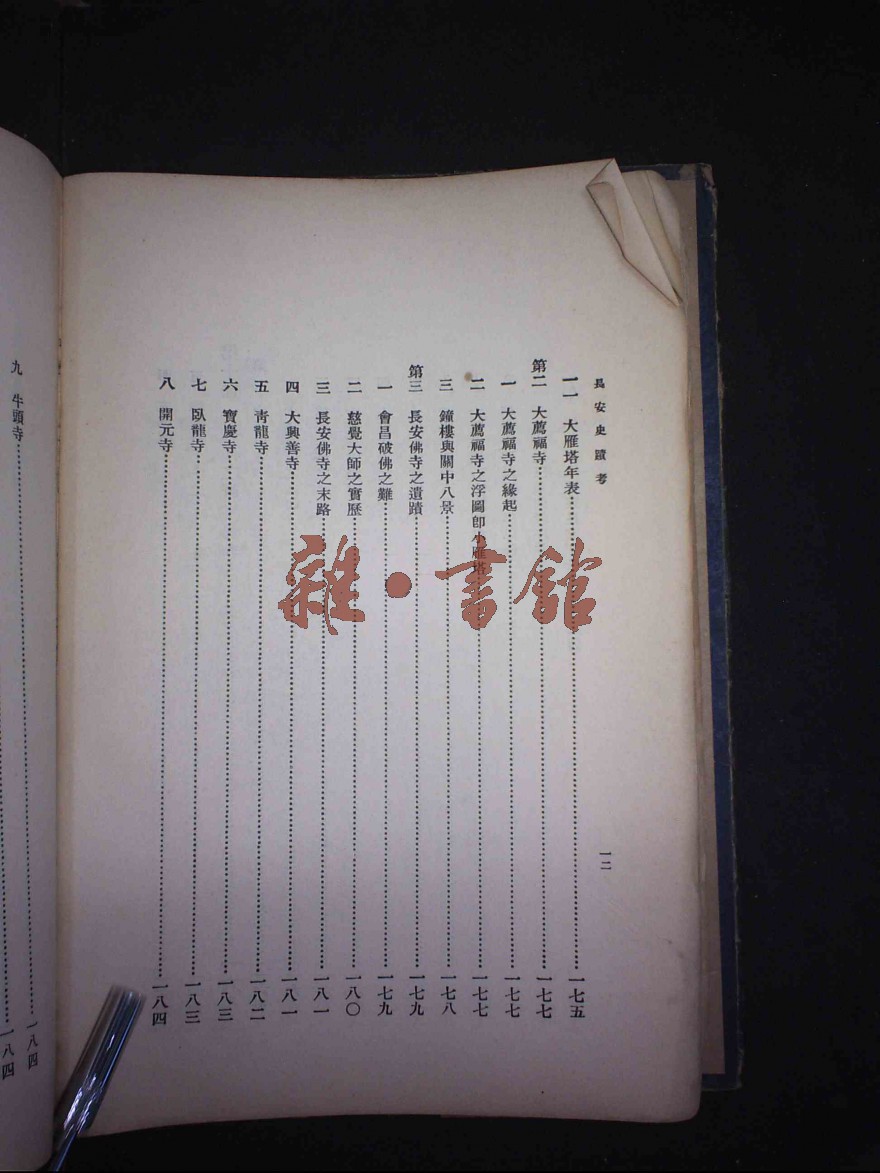 長安史蹟考
一二
一一 大雁塔年表……一七五
第二 大薦福寺……一七七
一 大薦福寺之緣起……一七七
二 大薦福寺之浮圖卽小雁塔……一七七
三 鐘樓與關中八景……一七八
第三 長安佛寺之遺蹟……一七九
一 會昌破佛之難……一七九
二 慈覺大師之實歷……一八〇
三 長安佛寺之末路……一八一
四 大興善寺……一八一
五 靑龍寺……一八二
六 寶慶寺……一八三
七 臥龍寺……一八三
八 開元寺……一八四
九 牛頭寺……一八四
一八四
雜·書館